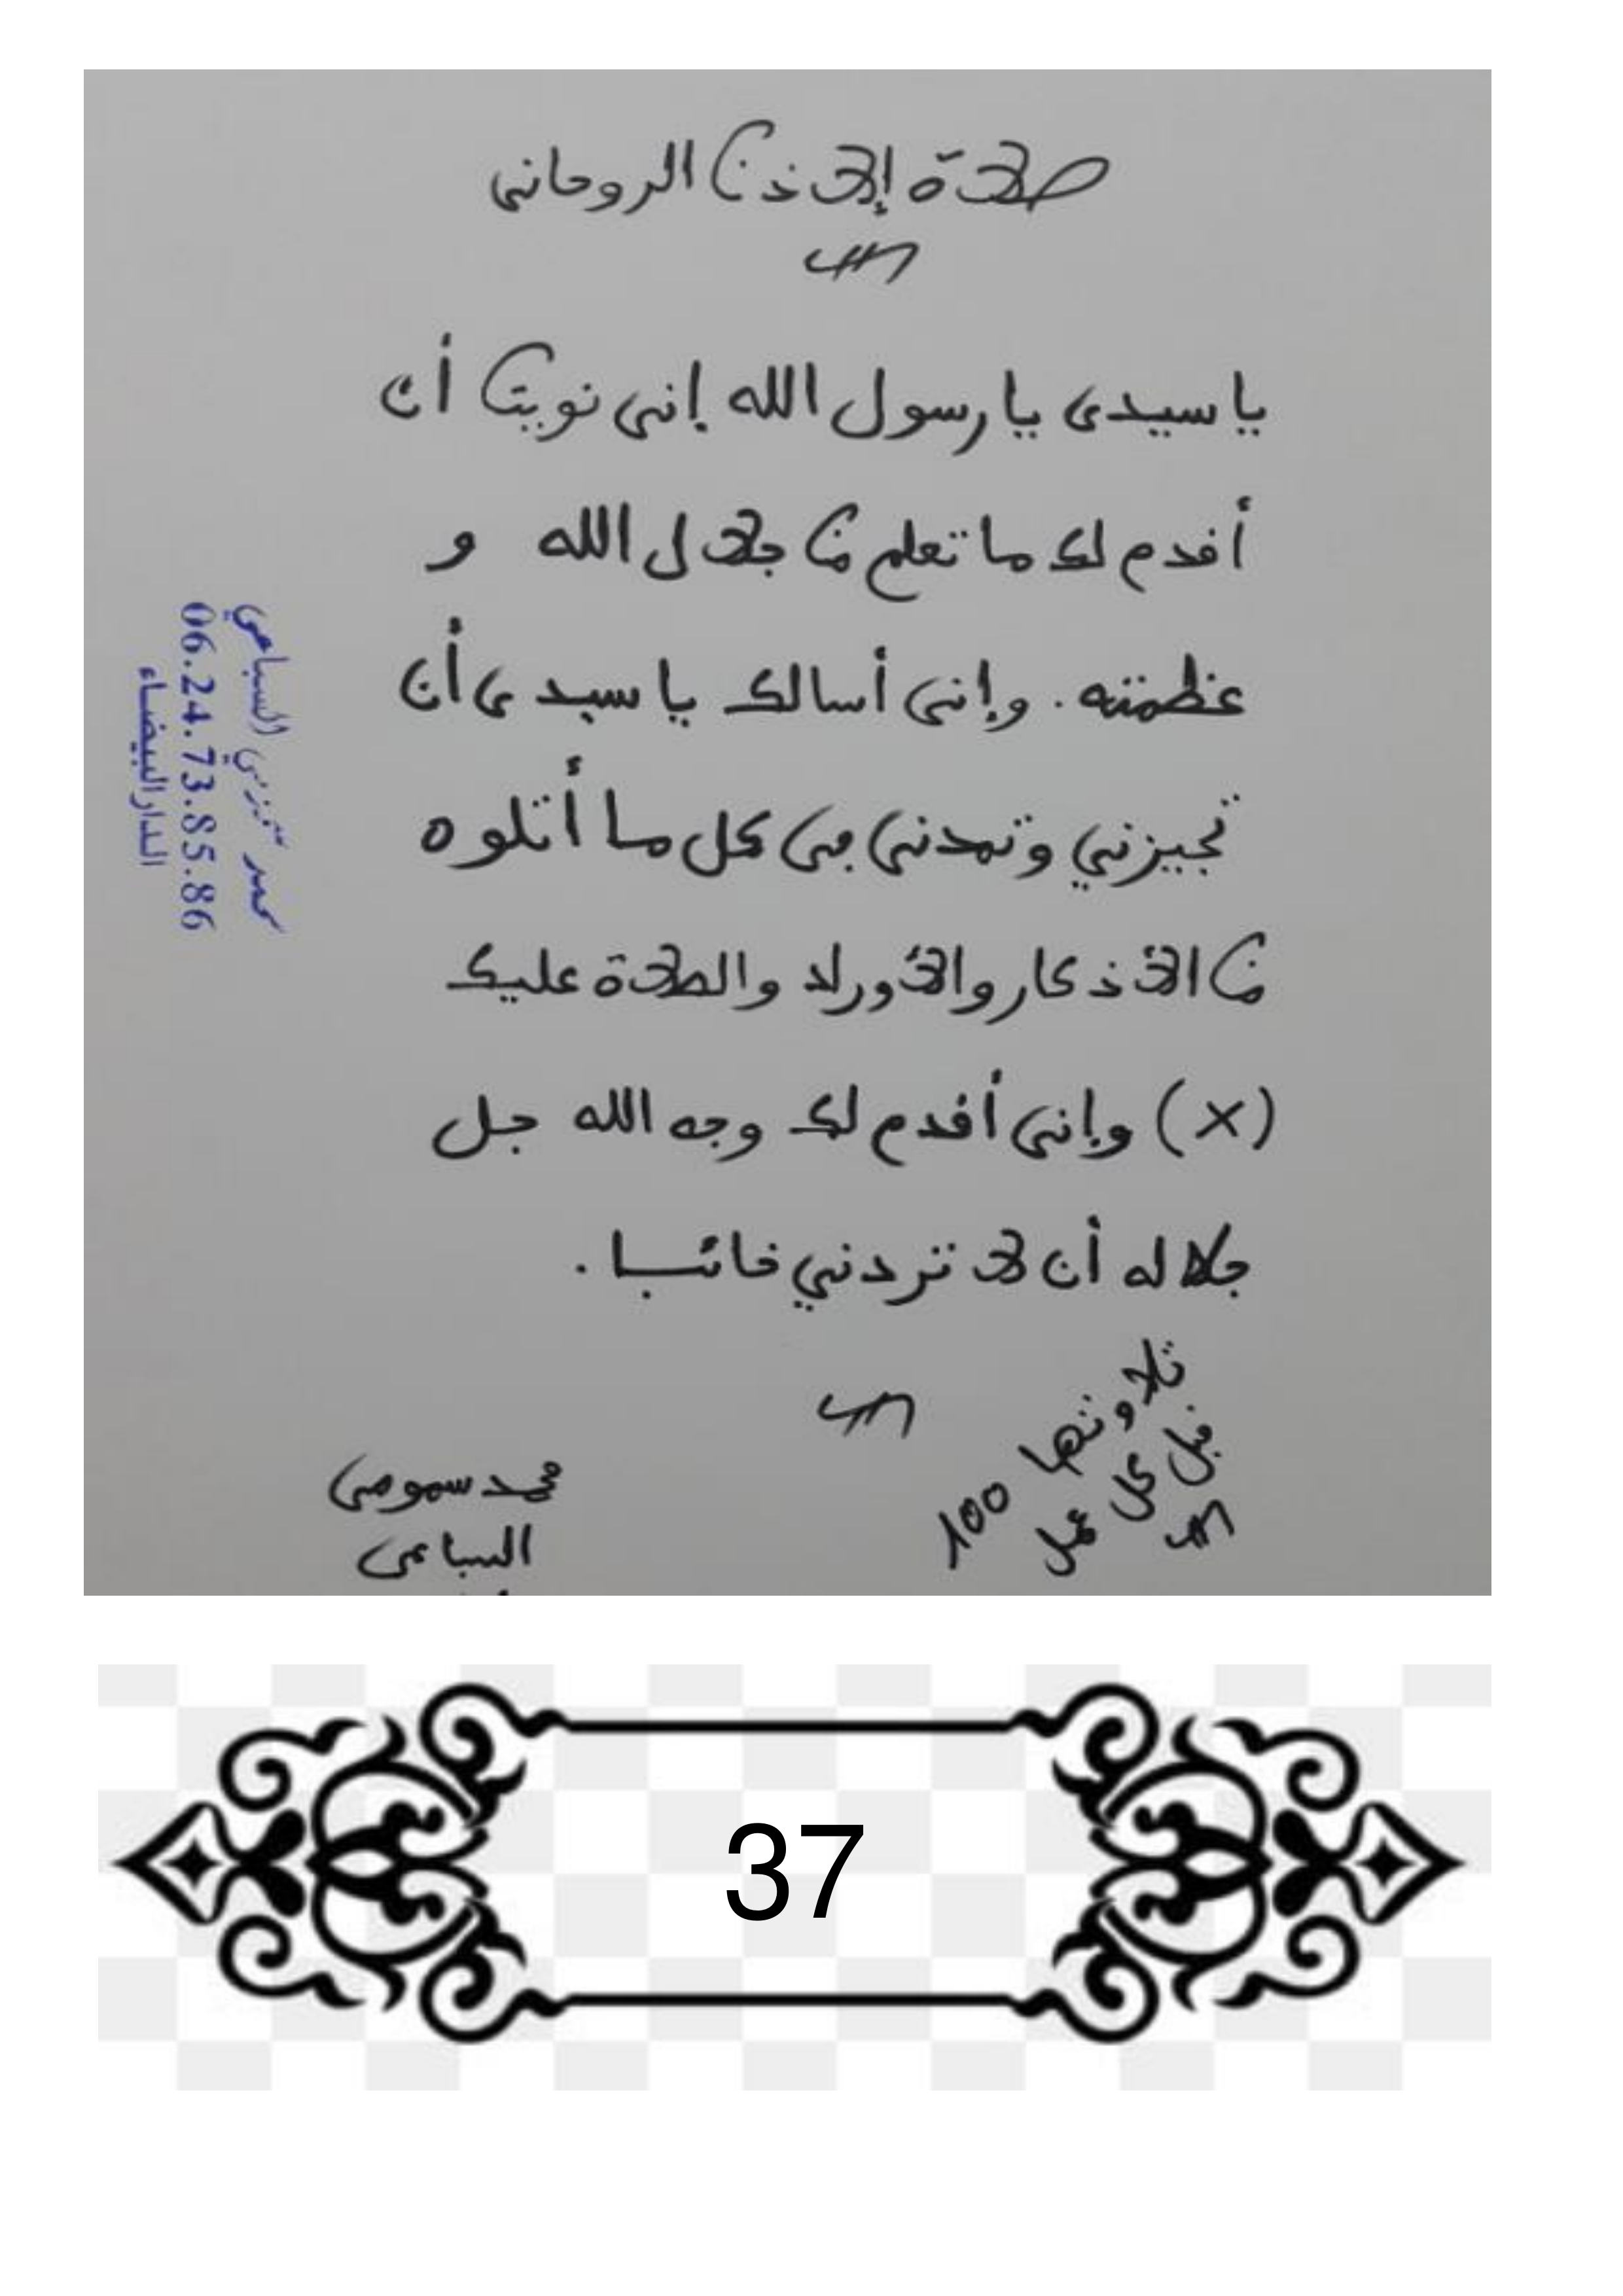 صلاة الإذن الروحاني
يا سيدي يا رسول الله إني نويت أن
أقدم لك ما تعلم من جلال الله و
عظمته. وإني أسألك يا سيدي أن
تجيزني وتمدني في كل ما أتلوه
من الأذكار والأوراد والصلاة عليك
(x) وإني أقدم لك وجه الله جل
جلاله أن لا تردني خائبا.
تلاوتها 100
قبل كل عمل
محمد سمومي
السباعي
السباعي
06.24.73.85.86
الدار البيضاء
37